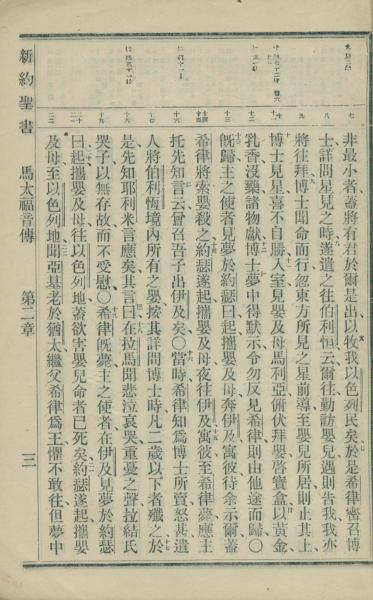 非最小者蓋將有君於爾是出以牧我以色列民矣於是希律密召博
士詳問星見之時遂遣之往伯利恒云爾往勤訪嬰兒遇則告我我亦
將往拜博士聞命而行忽東方所見之星前導至嬰兒所居則止其上
博士見星喜不自勝入室見嬰及母馬利亞俯伏拜嬰啓寶盒以黃金
乳香沒藥諸物獻博士夢中得默示令勿反見希律則由他途而歸〇
旣歸主之使者見夢於約瑟曰起攜嬰及母奔伊及寓彼待余示爾蓋
希律將索嬰殺之約瑟遂起攜嬰及母夜往伊及寓彼至希律薨應主
托先知言云曾召吾子出伊及矣〇當時希律知爲博士所賣怒甚遣
人將伯利恒境內所有之嬰按其詳問博士時凡二歲以下者殲之於
是先知耶利米言應矣其言曰在拉馬聞悲泣哀哭重憂之聲拉結氏
哭子以無存故而不受慰〇希律旣薨主之使者在伊及見夢於約瑟
曰起攜嬰及母往以色列地蓋欲害嬰兒命者已死矣約瑟遂起攜嬰
及母至以色列地聞亞基老於猶太繼父希律爲王懼不敢往但夢中
新約聖書 馬太福音傳 第二章 三